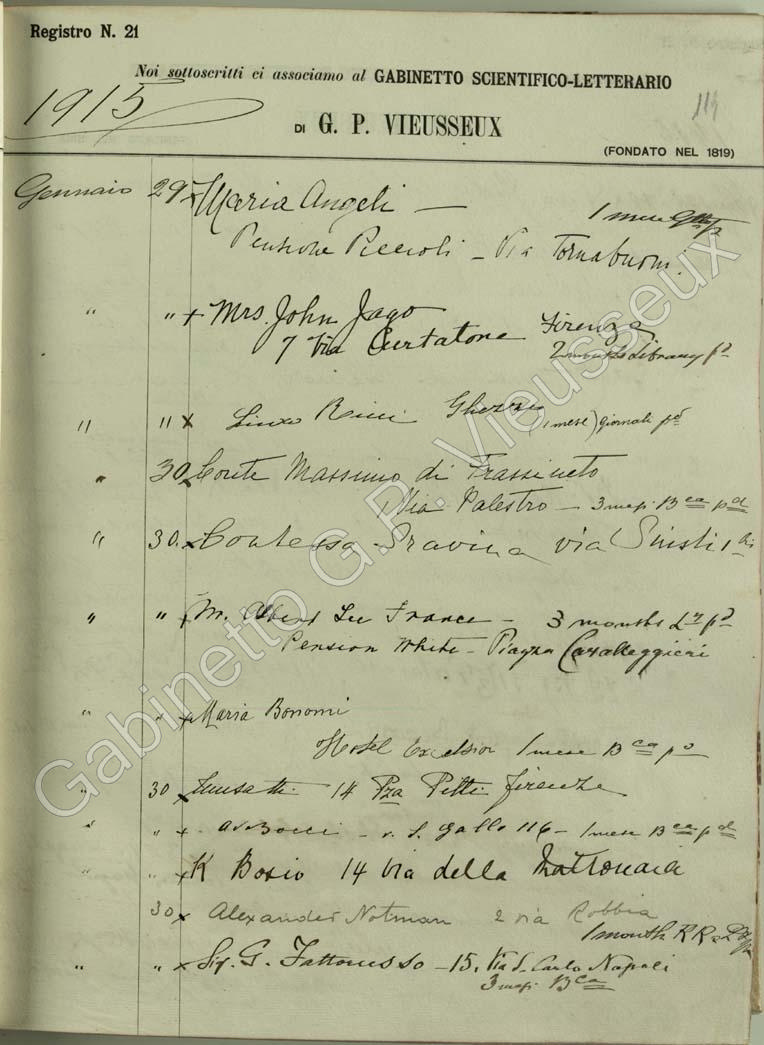 Registro N. 21
Noi sottoscritti ci associamo al GABINETTO SCIENTIFICO-LETTERARIO
1915
114
DI G. P. VIEUSSEUX
(FONDATO NEL 1819)
Gennaio 29 x Maria Angeli — 1 mese
Pensione Piccioli - Via Tornabuoni.
" " x Mrs. John Jago
7 Via Curtatone Firenze
2 months Library pd
" " x Ricci 1 mese) giornali pd
" 30 x Conte Massimo di Frassineto
Via Palestro - 3 mesi Bca pd
" 30. x Contessa Gravina via Giusti 1 bis
" " x M. Albert Lee France - 3 months Ly pd
Pension White - Piazza Cavalleggieri
" " x Maria Bonomi
Hotel Excelsior 1 mese Bca po
" 30 x 14 Pza Pitti firenze
" " x - v. S. Gallo 116 - 1 mese Bca pd
" " x K Bosio 14 Via della Mattonaia
30 x Alexander Notman 2 via Robbia
1 month RR
" " x Sig. G. - 15, Via S. Carlo Napoli
3 mesi Bca
Gabinetto G.P. Vieusseux